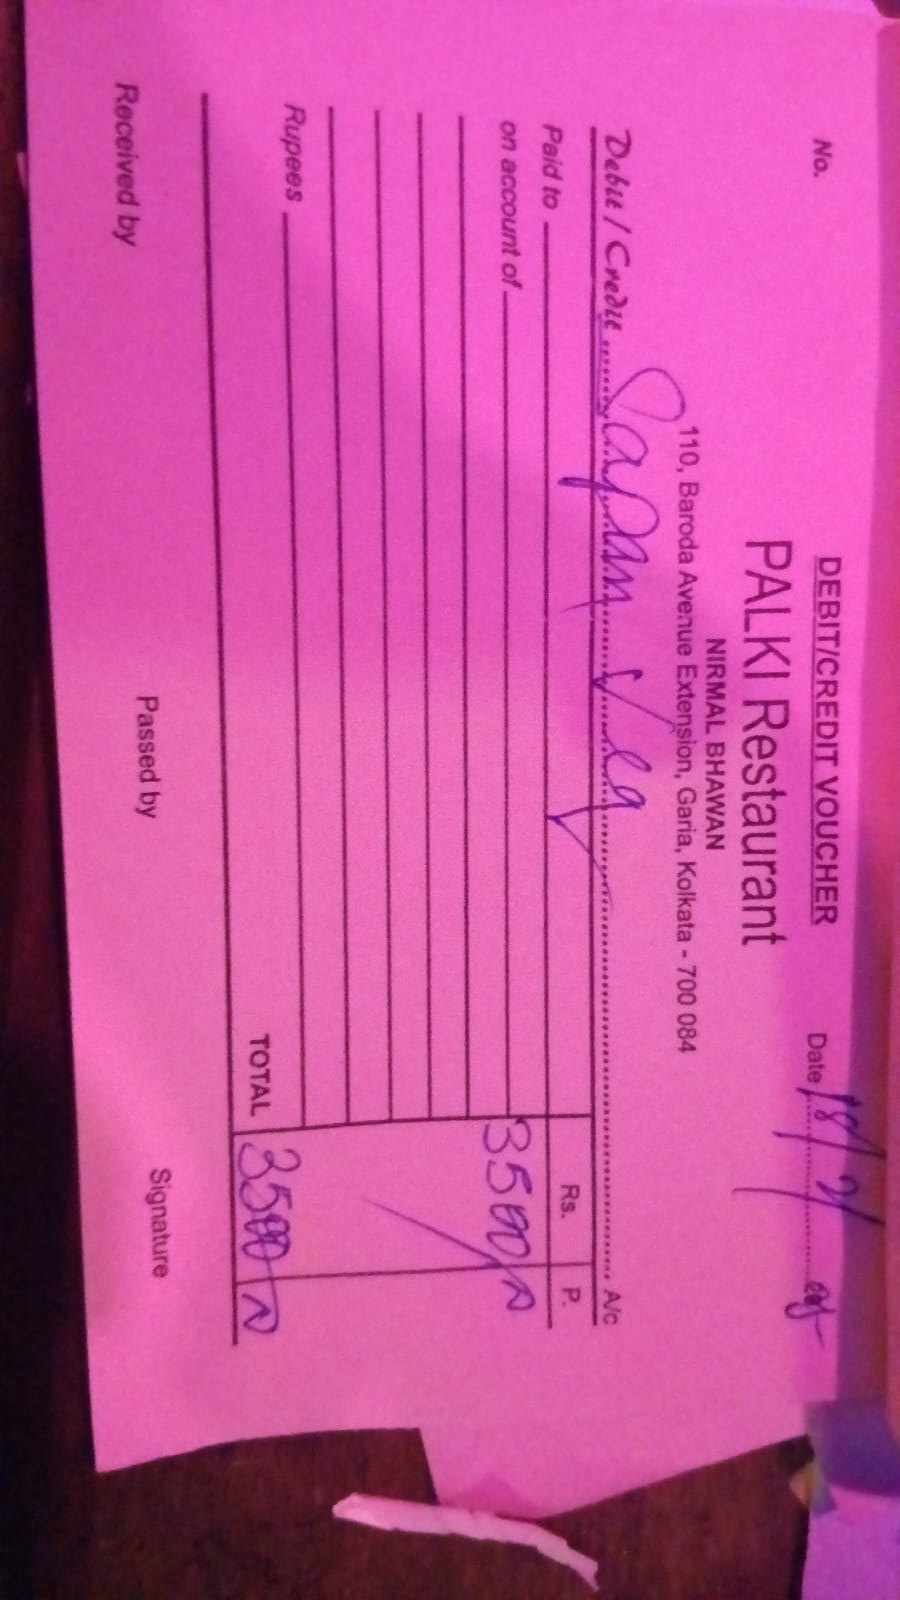 DEBIT/CREDIT VOUCHER
No. Date 18/2/
PALKI Restaurant
NIRMAL BHAWAN
110, Baroda Avenue Extension, Garia, Kolkata - 700 084
Debit / Credit Sapan Veg A/c
Paid to Rs. P.
on account of 3500/
Rupees TOTAL 3500
Received by Passed by Signature